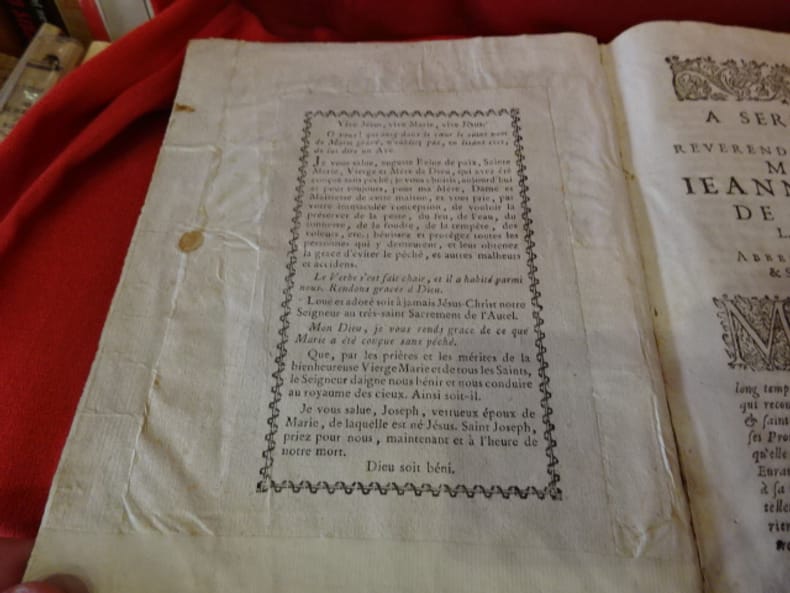 Vive Jésus, vive Marie, vive Jésus!
O vous! qui avez dans le cœur le saint nom
de Marie gravé, n'oubliez pas, en lisant ceci,
de lui dire un Ave.
Je vous salue, auguste Reine de paix, Sainte
Marie, Vierge et Mère de Dieu, qui avez été
conçue sans péché; je vous choisis, aujourd'hui
et pour toujours, pour ma Mère, Dame et
Maîtresse de cette maison, et vous prie, par
votre immaculée conception, de vouloir la
préserver de la peste, du feu, de l'eau, du
tonnerre, de la foudre, de la tempête, des
voleurs, etc.; bénissez et protégez toutes les
personnes qui y demeurent, et leur obtenez
la grace d'éviter le péché, et autres malheurs
et accidens.
Le Verbe s'est fait chair, et il a habité parmi
nous. Rendons graces à Dieu.
Loué et adoré soit à jamais Jésus-Christ notre
Seigneur au très-saint Sacrement de l'Autel.
Mon Dieu, je vous rends grace de ce que
Marie a été conçue sans péché.
Que, par les prières et les mérites de la
bienheureuse Vierge Marie et de tous les Saints,
le Seigneur daigne nous bénir et nous conduire
au royaume des cieux. Ainsi soit-il.
Je vous salue, Joseph, vertueux époux de
Marie, de laquelle est né Jésus. Saint Joseph,
priez pour nous, maintenant et à l'heure de
notre mort.
Dieu soit béni.
A SER
REVEREND
M
IEANN
DE
L
ABBE
& S
M
long temp
qui recou
& saint
ses Pro
qu'elle
Euran
à sa
telle
rien